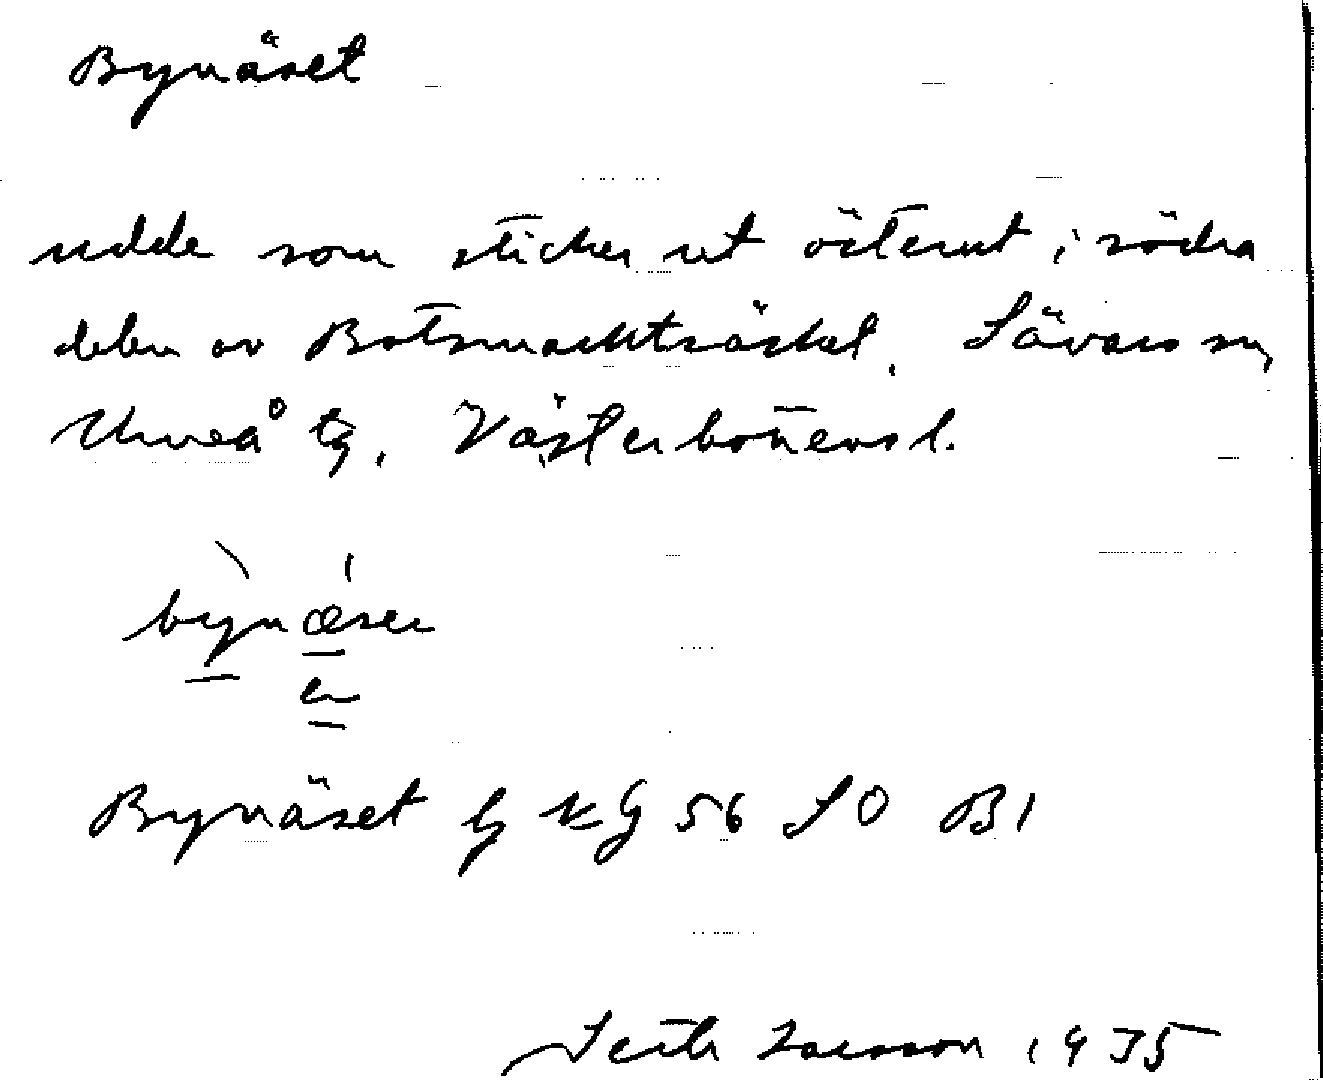 Bynäset
udde som sticker ut österut i södra
delen av Botsmarktträsket. Sävars sn,
Umeå tg, Västerbottens l.
bynæsen
Bynäset Eg kg 56 SO B1
1975